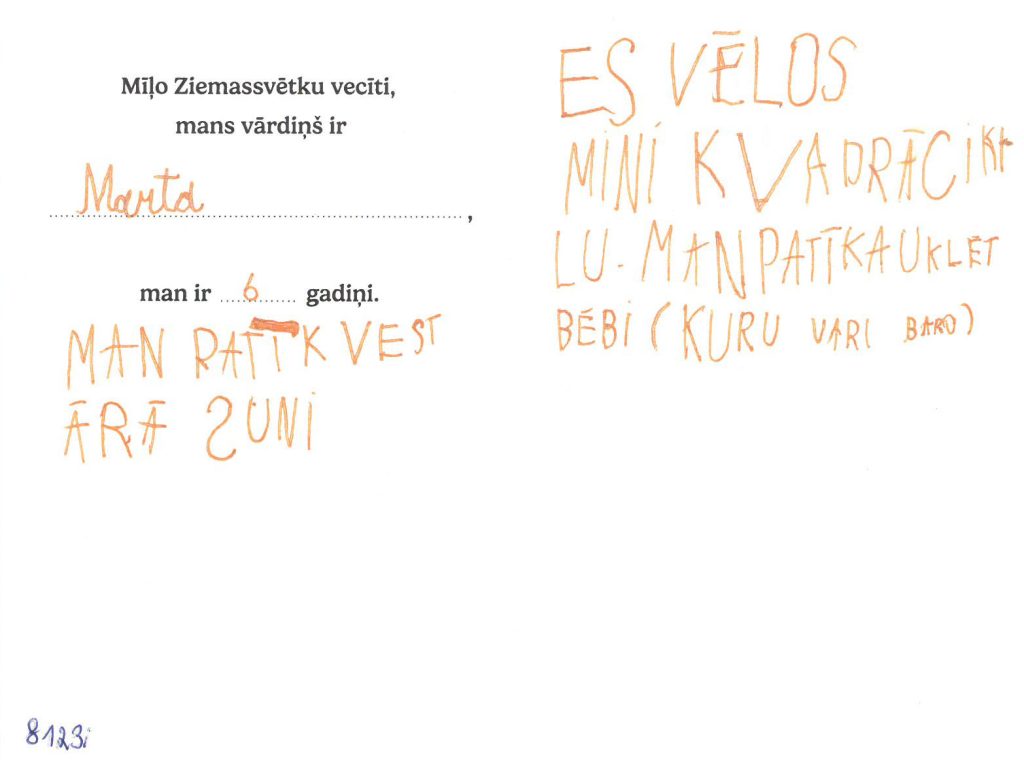 Mīļo Ziemassvētku vecīti,
mans vārdiņš ir
Marta,
man ir 6 gadiņi.
MAN PATĪK VEST
ĀRĀ SUNI
ES VĒLOS
MINI KVADRĀCIKT
LU. MAN PATĪK AUKLĒT
BĒBI (KURU VARI BARO)
8123i